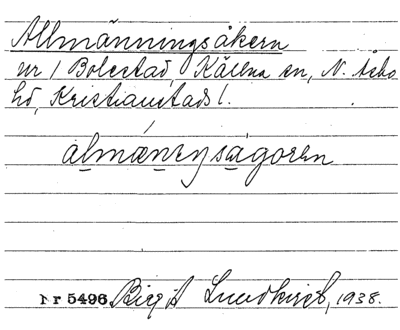 Allmänningsåkern
nr 1 Bolestad Källna sn, N. Åsbo
hd, Kristianstads l.
almæneŋsagoren
Nr 5496 Birgit Lundkvist, 1938.